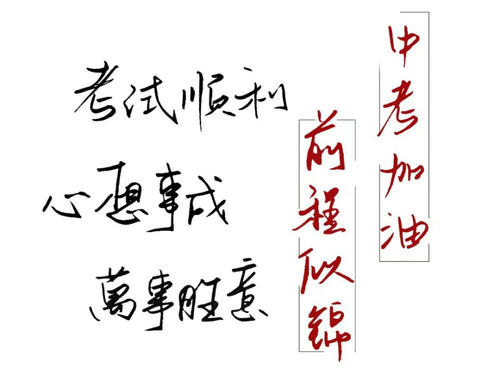 中考加油
前程似錦
考试順利
心想事成
萬事胜意